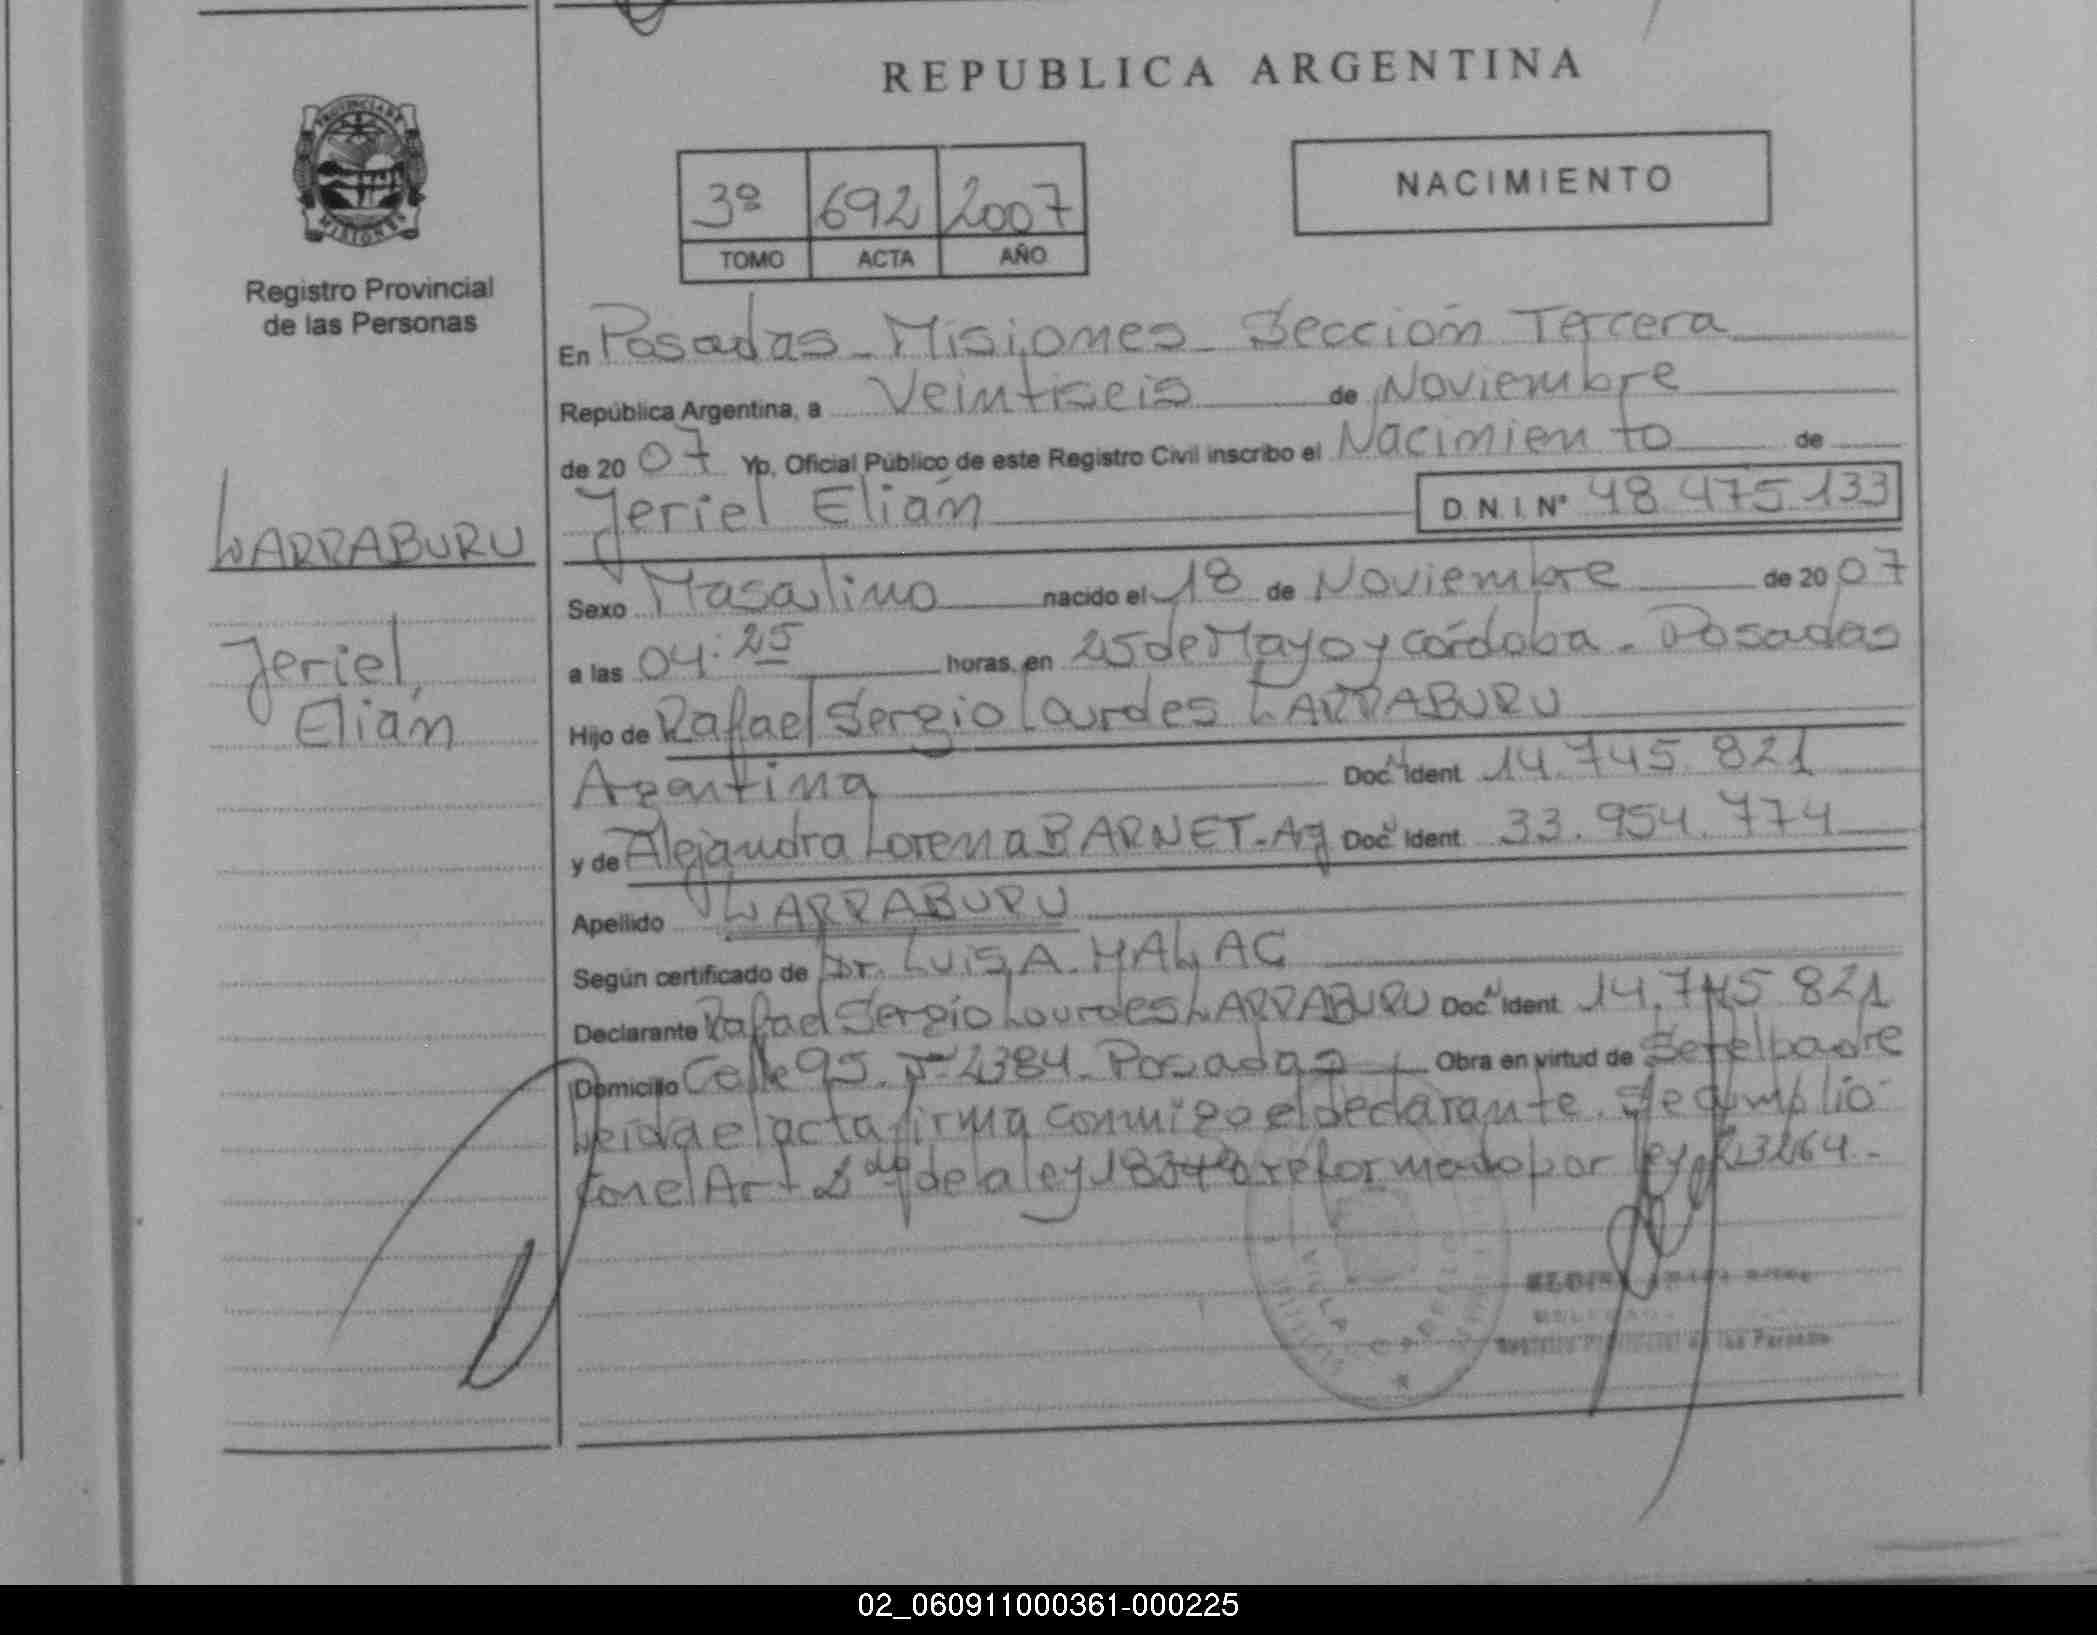 REPUBLICA ARGENTINA
PROVINCIA DE
MISIONES
Registro Provincial
de las Personas
3º 692 2007
TOMO ACTA AÑO
NACIMIENTO
En Posadas - Misiones - Sección Tercera
República Argentina, a Veintiseis de Noviembre
de 20 07 Yo, Oficial Público de este Registro Civil inscribo el Nacimiento de
Jeriel Elián D.N.I. Nº 48.475.133
LARRABURU
Jeriel,
Elián
Sexo Masculino nacido el 18 de Noviembre de 20 07
a las 04:25 horas, en 25 de Mayo y Córdoba - Posadas
Hijo de Rafael Sergio Lourdes LARRABURU
Argentina Doc. Ident. 14.745.821
y de Alejandra Lorena BARNET - Arg Doc. Ident. 33.954.774
Apellido LARRABURU
Según certificado de Dr. Luis A. MALAC
Declarante Rafael Sergio Lourdes LARRABURU Doc. Ident. 14.745.821
Domicilio Calle 95 Nº 2384 - Posadas Obra en virtud de Ser el padre
Leida el acta firma conmigo el declarante. Se cumplió
con el Art 2do de la ley 18248 reformado por ley 23264.-
VILLA CABELLO
02_060911000361-000225